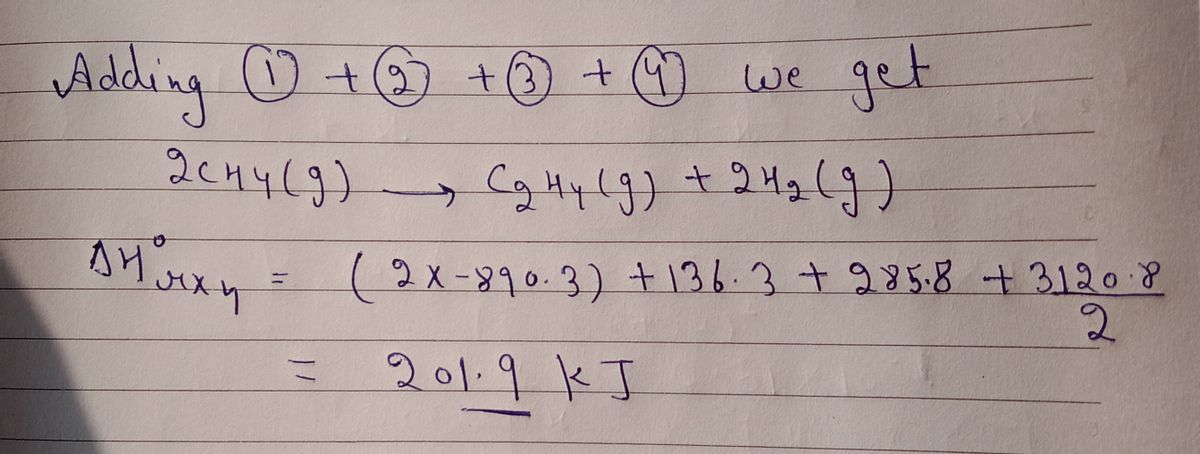 Adding ① + ② + ③ + ④ we get
2CH4(g) → C2H4(g) + 2H2(g)
ΔH°rxn = (2x-890.3) + 136.3 + 285.8 + 3120.8/2
= 201.9 kJ